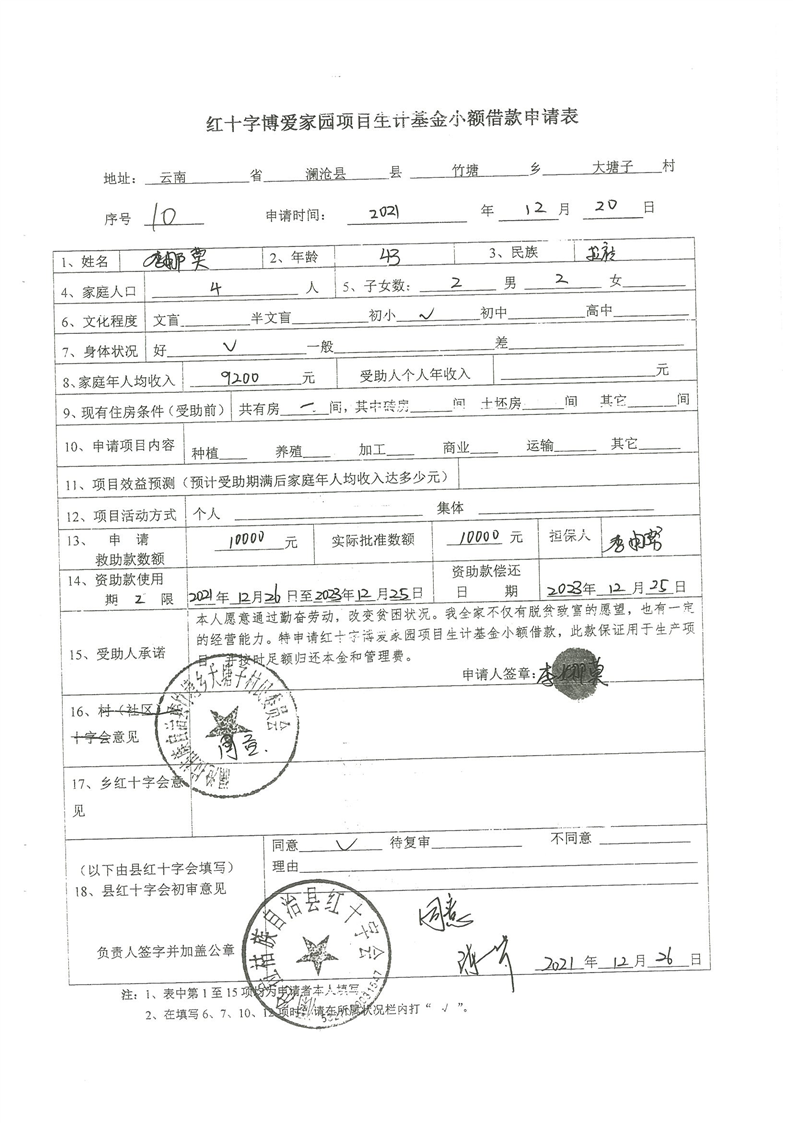 红十字博爱家园项目生计基金小额借款申请表
地址： 云南 省 澜沧县 县 竹塘 乡 大塘子 村
序号 10 申请时间： 2021 年 12 月 20 日
1、姓名 李娜莫 2、年龄 43 3、民族 拉祜
4、家庭人口 4 人 5、子女数： 2 男 2 女
6、文化程度 文盲 半文盲 初小 √ 初中 高中
7、身体状况 好 √ 一般 差
8、家庭年人均收入 9200 元 受助人个人年收入 元
9、现有住房条件（受助前） 共有房 一 间，其中砖房 间 土坯房 间 其它 间
10、申请项目内容 种植 养殖 加工 商业 运输 其它
11、项目效益预测（预计受助期满后家庭年人均收入达多少元）
12、项目活动方式 个人 集体
13、 申 请 救助款数额 10000 元 实际批准数额 10000 元 担保人
14、资助款使用 期 2 限 2021年 12月 26 日至 2023年 12月 25日 资助款偿还 日 期 2023年 12 月 25 日
15、受助人承诺
本人愿意通过勤奋劳动，改变贫困状况。我全家不仅有脱贫致富的愿望，也有一定
的经营能力。特申请红十字博爱家园项目生计基金小额借款，此款保证用于生产项
目，并按时足额归还本金和管理费。
申请人签章： 李娜莫
16、村（社区）红
十字会意见
同意.
竹塘乡大塘子村民委员会
17、乡红十字会意
见
（以下由县红十字会填写）
18、县红十字会初审意见
负责人签字并加盖公章
同意 √ 待复审 不同意
理由
拉祜族自治县红十字会
同意
2021 年 12 月 26 日
注：1、表中第 1 至 15 项均为申请者本人填写
2、在填写 6、7、10、12 项时，请在所属状况栏内打“ √ ”。